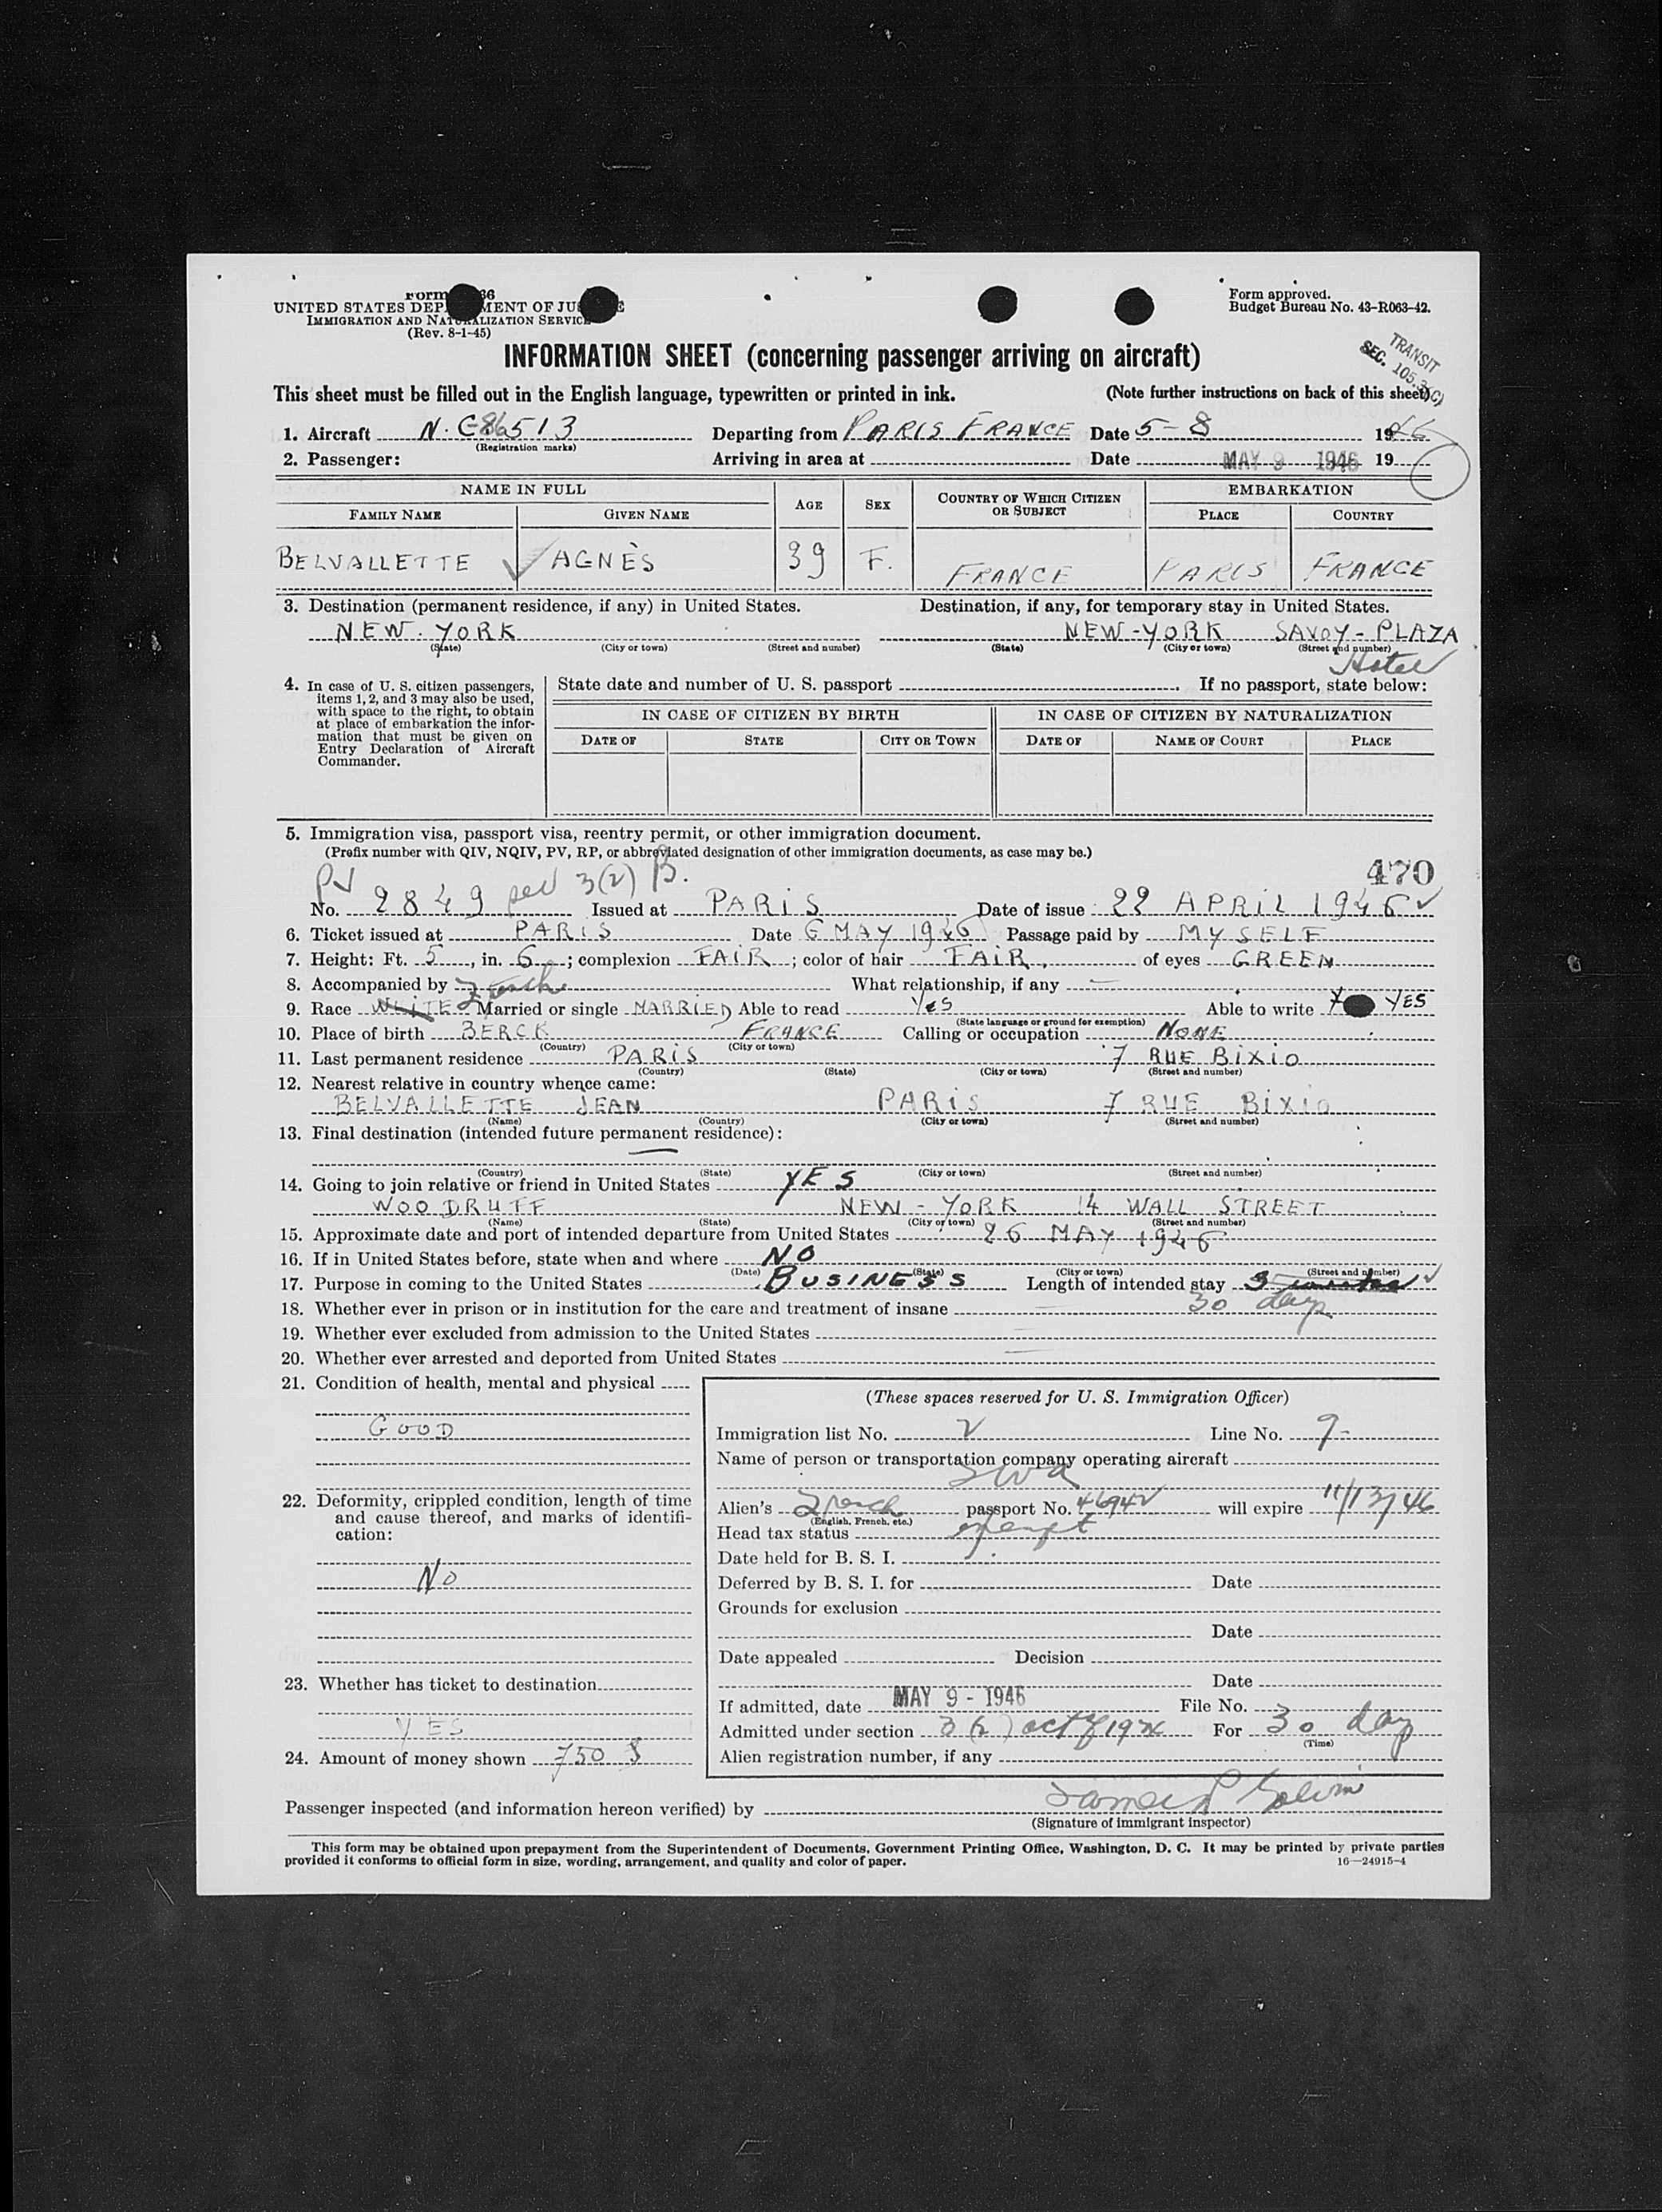 UNITED STATES DEP MENT OF JU E
IMMIGRATION AND NATURALIZATION SERVICE
(Rev. 8-1-45)
Form approved.
Budget Bureau No. 43-R063-42.
TRANSIT
SEC. 105.3(C)
INFORMATION SHEET (concerning passenger arriving on aircraft)
This sheet must be filled out in the English language, typewritten or printed in ink. (Note further instructions on back of this sheet)
1. Aircraft N. C 86513 Departing from PARIS FRANCE Date 5-8 1946
(Registration marks)
2. Passenger: Arriving in area at Date MAY 9 1946 19
NAME IN FULL AGE SEX COUNTRY OF WHICH CITIZEN OR SUBJECT EMBARKATION
FAMILY NAME GIVEN NAME PLACE COUNTRY
BELVALLETTE AGNÈS 39 F. FRANCE PARIS FRANCE
3. Destination (permanent residence, if any) in United States. Destination, if any, for temporary stay in United States.
NEW-YORK NEW-YORK SAVOY-PLAZA
(State) (City or town) (Street and number) (State) (City or town) (Street and number)
Hotel
4. In case of U. S. citizen passengers, items 1, 2, and 3 may also be used, with space to the right, to obtain at place of embarkation the information that must be given on Entry Declaration of Aircraft Commander.
State date and number of U. S. passport If no passport, state below:
IN CASE OF CITIZEN BY BIRTH IN CASE OF CITIZEN BY NATURALIZATION
DATE OF STATE CITY OR TOWN DATE OF NAME OF COURT PLACE
5. Immigration visa, passport visa, reentry permit, or other immigration document.
(Prefix number with QIV, NQIV, PV, RP, or abbreviated designation of other immigration documents, as case may be.)
470
PV 3(2) B.
No. 2849 Issued at PARIS Date of issue 22 APRIL 1946
6. Ticket issued at PARIS Date 6 MAY 1946 Passage paid by MYSELF
7. Height: Ft. 5, in. 6; complexion FAIR; color of hair FAIR. of eyes GREEN
8. Accompanied by What relationship, if any —
French
9. Race WHITE Married or single MARRIED Able to read YES Able to write YES
(State language or ground for exemption)
10. Place of birth BERCK FRANCE Calling or occupation NONE
(Country) (City or town)
11. Last permanent residence PARIS 7 RUE BIXIO
(Country) (State) (City or town) (Street and number)
12. Nearest relative in country whence came:
BELVALLETTE JEAN PARIS 7 RUE BIXIO
(Name) (Country) (City or town) (Street and number)
13. Final destination (intended future permanent residence):
—
(Country) (State) (City or town) (Street and number)
14. Going to join relative or friend in United States YES
WOODRUFF NEW-YORK 14 WALL STREET
(Name) (State) (City or town) (Street and number)
15. Approximate date and port of intended departure from United States 26 MAY 1946
16. If in United States before, state when and where NO
(Date) (State) (City or town) (Street and number)
17. Purpose in coming to the United States BUSINESS Length of intended stay 3 weeks
30 days
18. Whether ever in prison or in institution for the care and treatment of insane —
19. Whether ever excluded from admission to the United States —
20. Whether ever arrested and deported from United States —
21. Condition of health, mental and physical
GOOD
22. Deformity, crippled condition, length of time and cause thereof, and marks of identification:
NO
23. Whether has ticket to destination
YES
24. Amount of money shown 750 $
(These spaces reserved for U. S. Immigration Officer)
Immigration list No. 2 Line No. 9-
Name of person or transportation company operating aircraft
TWA
Alien's French passport No. 46942 will expire 11/13/46
(English, French, etc.)
Head tax status exempt
Date held for B. S. I.
Deferred by B. S. I. for Date
Grounds for exclusion
Date
Date appealed Decision
Date
If admitted, date MAY 9 - 1946 File No.
Admitted under section 3(2) act of 1924 For 30 days
(Time)
Alien registration number, if any
Passenger inspected (and information hereon verified) by
(Signature of immigrant inspector)
This form may be obtained upon prepayment from the Superintendent of Documents, Government Printing Office, Washington, D. C. It may be printed by private parties
provided it conforms to official form in size, wording, arrangement, and quality and color of paper. 16—24915-4